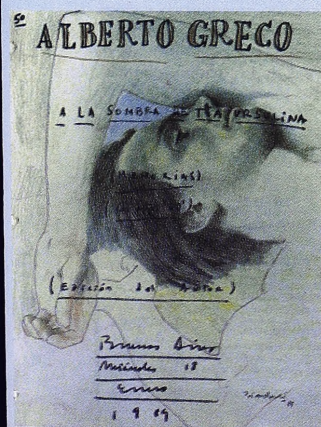 50
ALBERTO GRECO
A LA SOMBRA DE TIA URSULINA
(MEMORIAS)
(Edición del Autor)
Buenos Aires
Miércoles 18
Enero